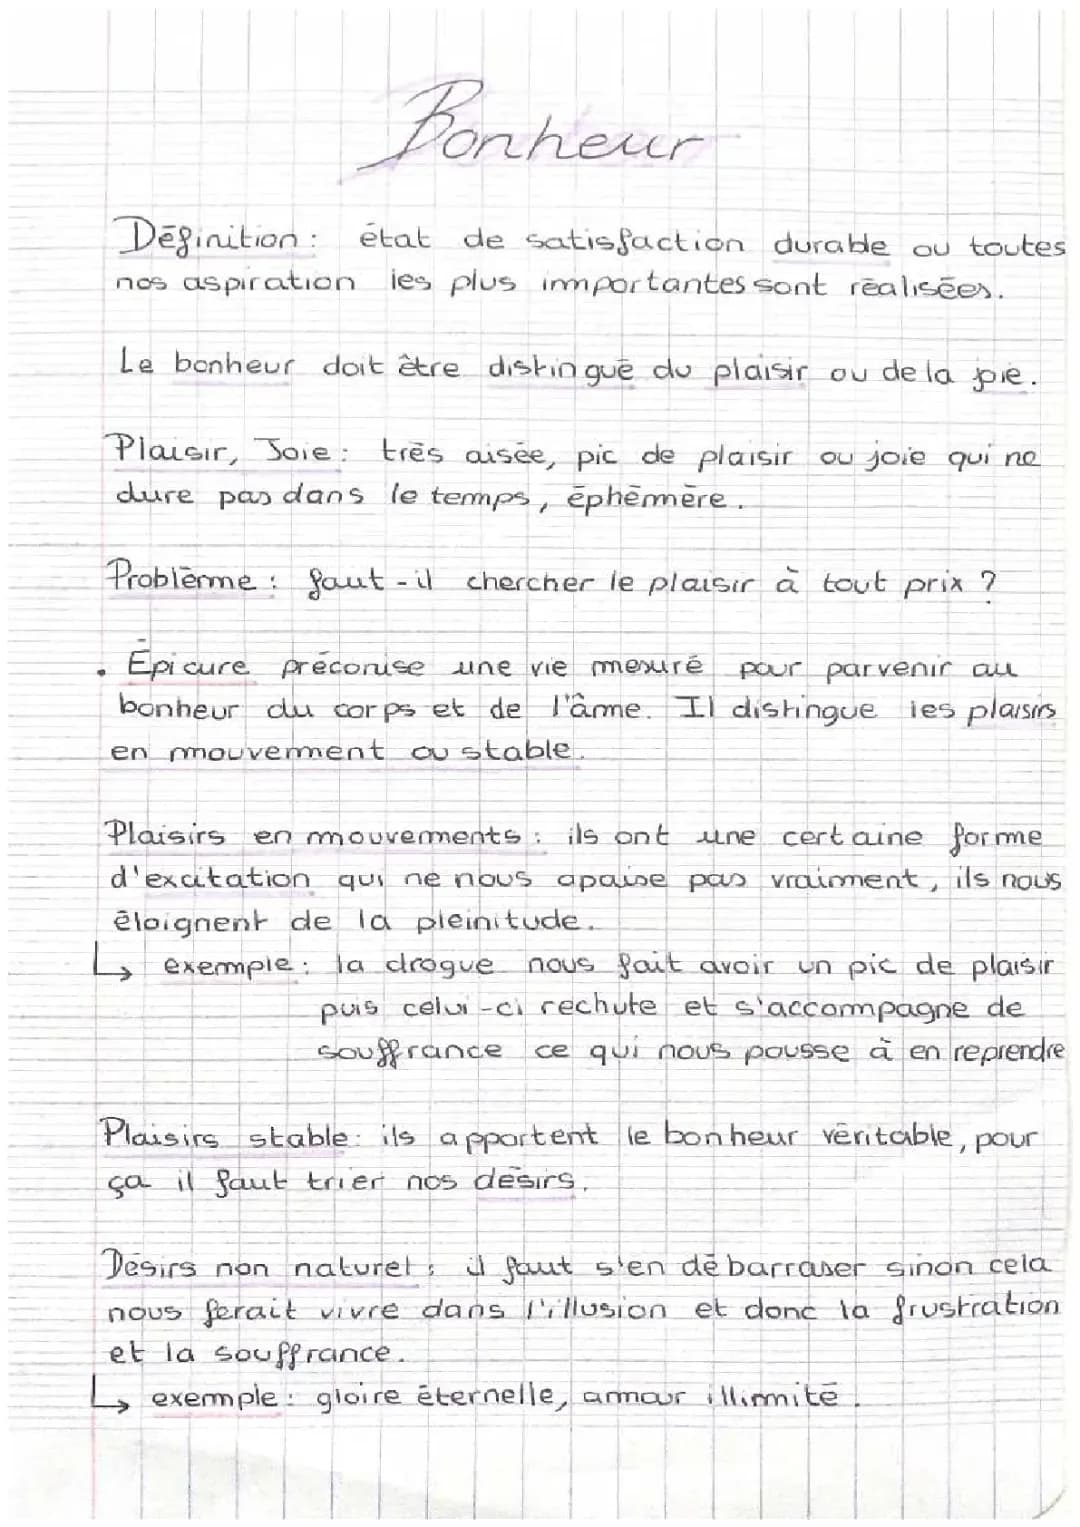 Bonheur
Définition : état de satisfaction durable ou toutes
nos aspiration les plus importantes sont réalisées.
Le bonheur doit être distingué du plaisir ou de la joie.
Plaisir, Joie : très aisée, pic de plaisir ou joie qui ne
dure pas dans le temps, éphémère.
Problème : faut-il chercher le plaisir à tout prix ?
• Épicure préconise une vie mesuré pour parvenir au
bonheur du corps et de l'âme. Il distingue les plaisirs
en mouvement ou stable.
Plaisirs en mouvements : ils ont une certaine forme
d'excitation qui ne nous apaise pas vraiment, ils nous
éloignent de la pleinitude.
↳ exemple : la drogue nous fait avoir un pic de plaisir
puis celui-ci rechute et s'accompagne de
souffrance ce qui nous pousse à en reprendre
Plaisirs stable : ils apportent le bonheur véritable, pour
ça il faut trier nos désirs.
Désirs non naturel : il faut s'en débarraser sinon cela
nous ferait vivre dans l'illusion et donc la frustration
et la souffrance.
↳ exemple : gloire éternelle, amour illimité.